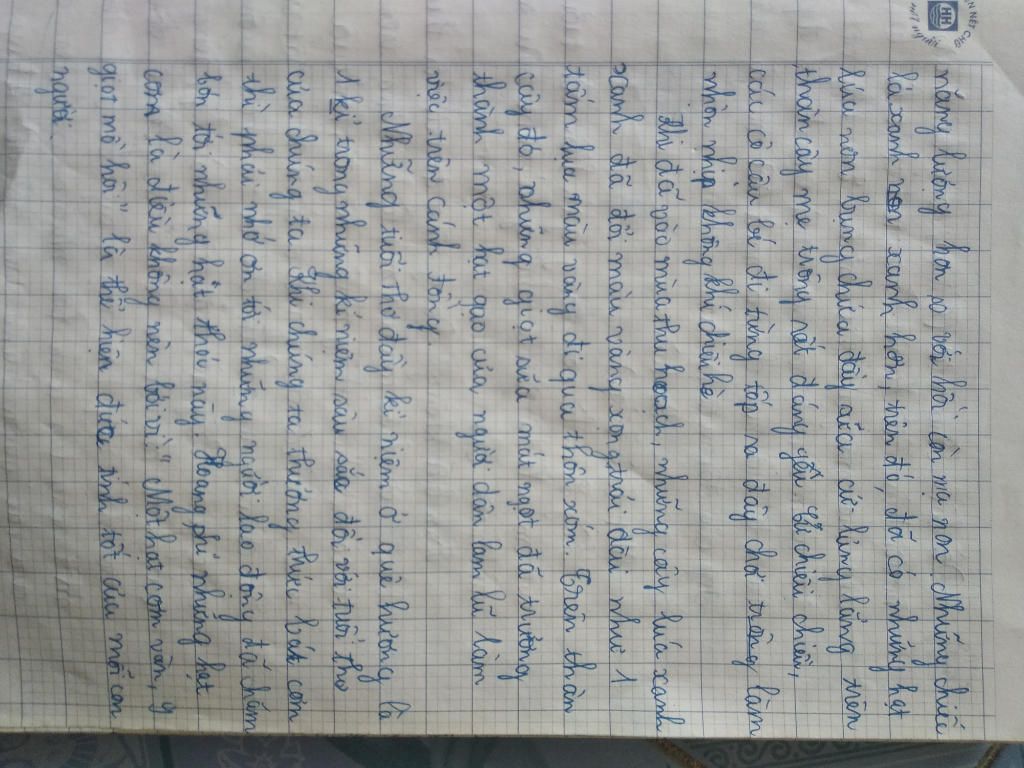 N NÉT CHỮ
nết người
HH
năng lượng hơn so với hồi còn mạ non. Những chiếc
lá xanh non xanh hơn, trên đó, đã có những hạt
lúa non bụng chứa đầy sữa cứ lủng lẳng trên
thân cây mẹ trông rất đáng yêu. Cứ chiều chiều,
các cô cậu bé đi từng tốp ra đây chơi trông làm
nhộn nhịp không khí chiều hè.
Khi đã vào mùa thu hoạch, những cây lúa xanh
xanh đã đổi màu vàng xọng, trải dài như 1
tấm lụa màu vàng đi qua thôn xóm. Trên thân
cây đó, những giọt sữa mát ngọt đã trưởng
thành một hạt gạo của người dân lam lũ làm
việc trên cánh đồng.
Những tuổi thơ đầy kỉ niệm ở quê hương là
1 kỉ trong những kỉ niệm sâu sắc đối với tuổi thơ
của chúng ta. Khi chúng ta thưởng thức bát cơm
thì phải nhớ ơn tới những người lao động đã hôm
hôn tới những hạt thóc này. Hoang phí những hạt
cơm là điều không nên bởi vì: " Một hạt cơm vàn, 9
giọt mồ hôi" là thể hiện được tính tốt của mỗi con
người.